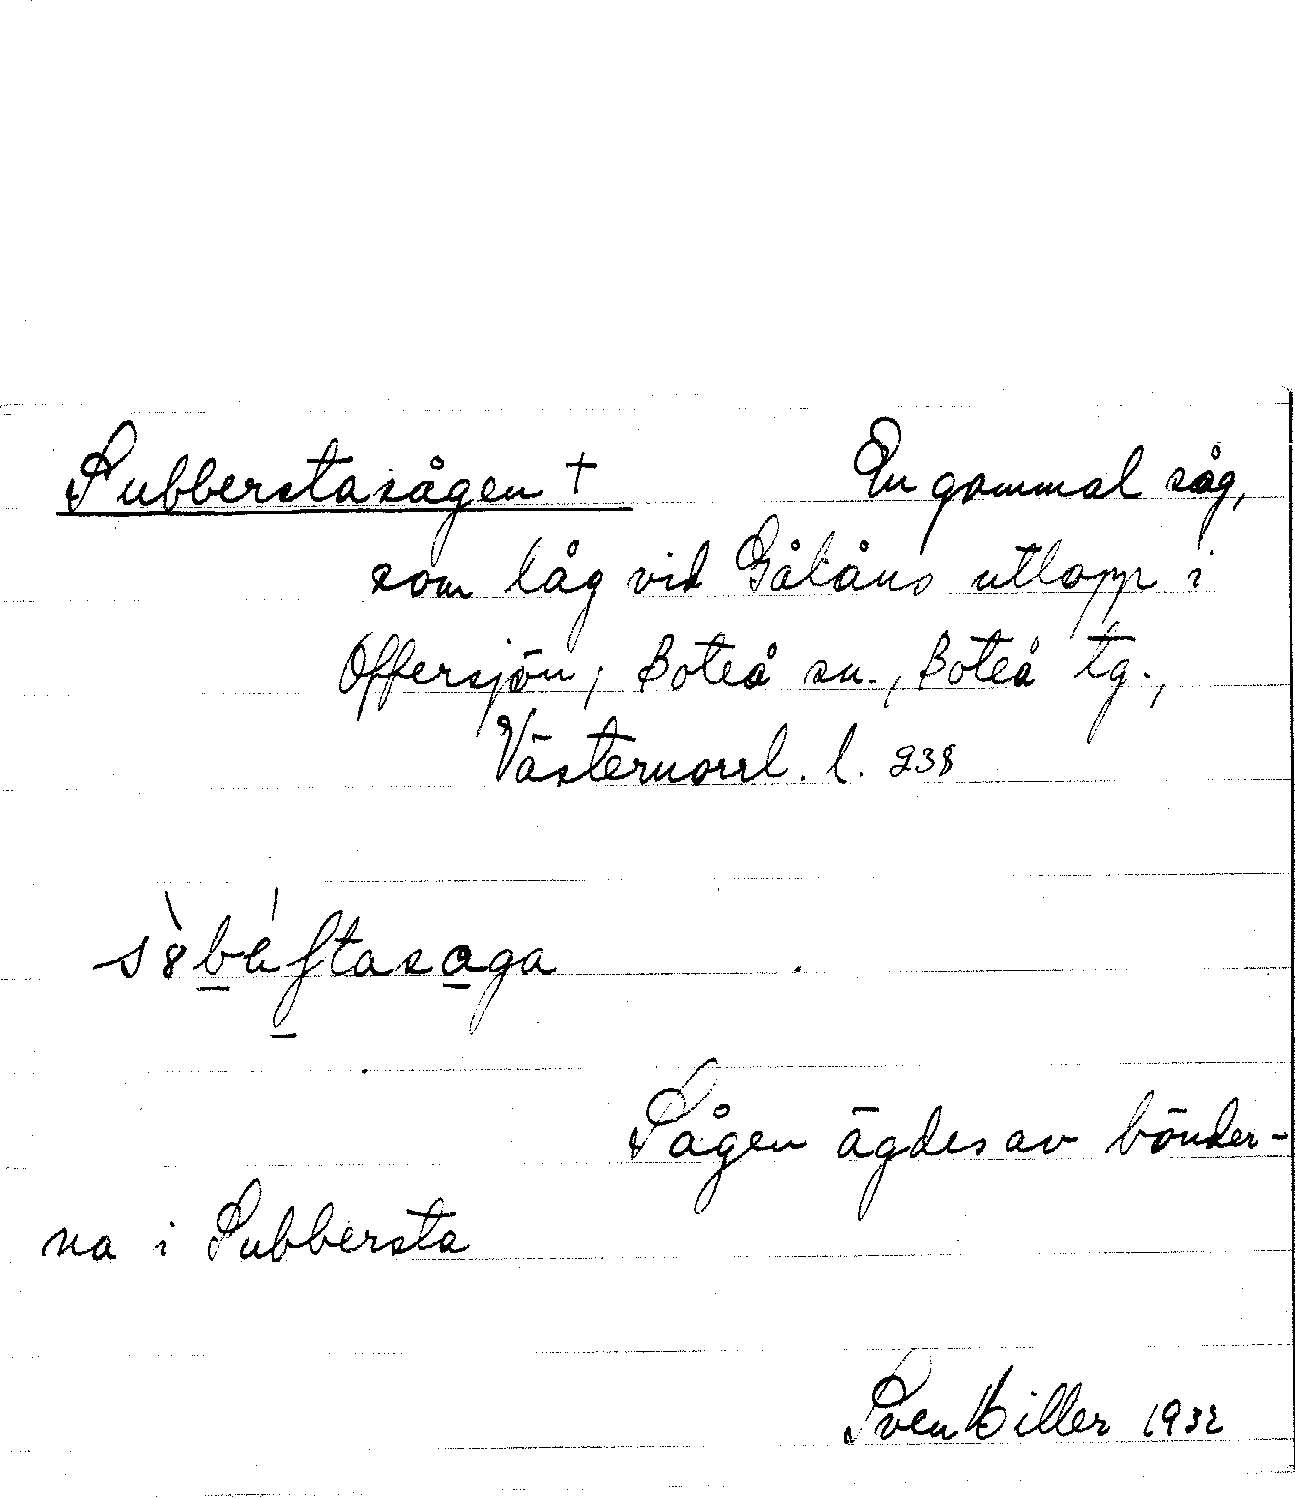 Subberstasågen + En gammal såg,
som låg vid Gålåns utlopp i
Offersjön, Boteå sn., Boteå tg.,
Västernorrl. l. 238
Sågen ägdes av bönder-
na i Subbersta
Sven Hiller 1932